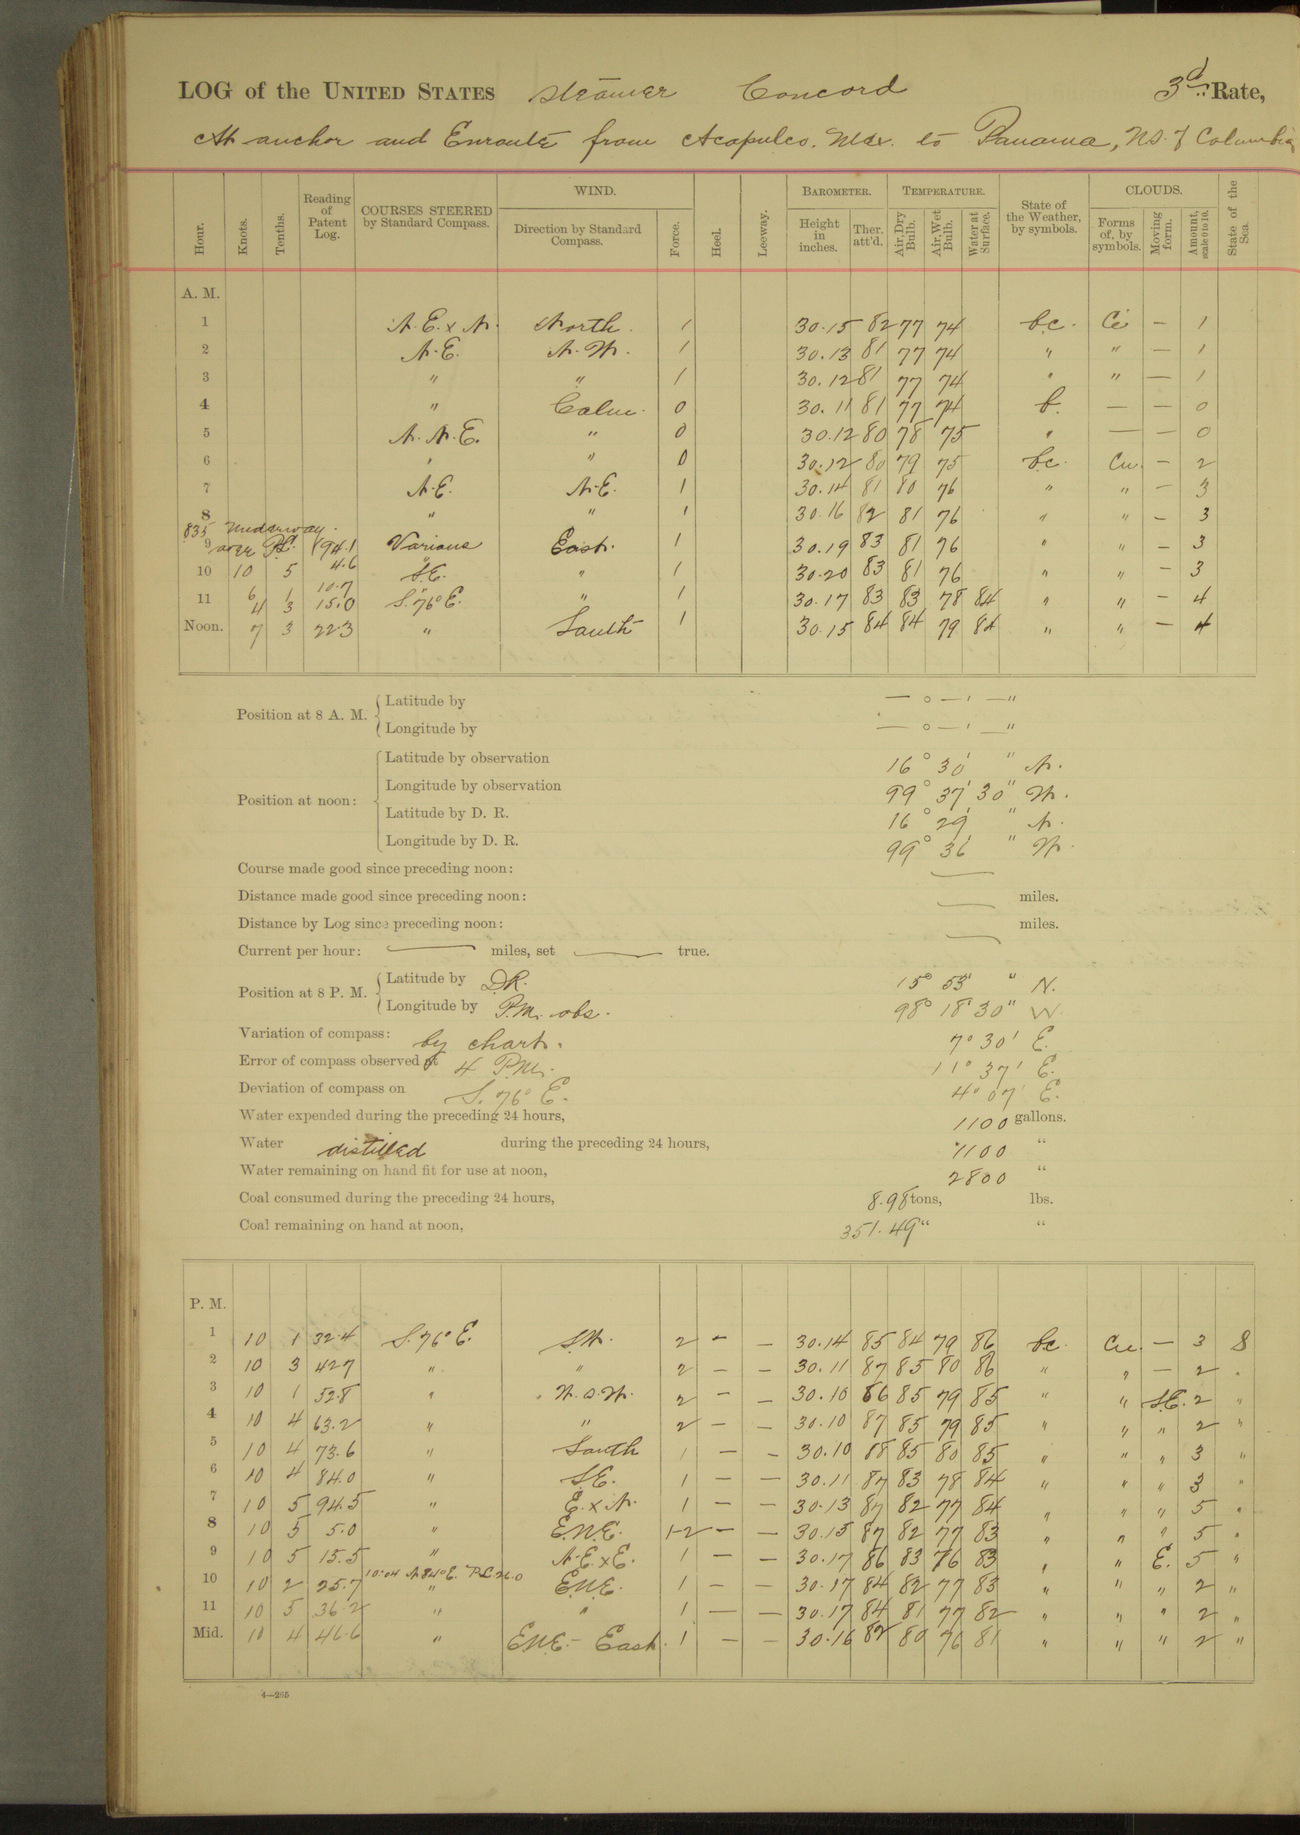 LOG of the UNITED STATES Steamer Concord 3d Rate,
At anchor and Enroute from Acapulco. Mex. to Panama, U.S. of Columbia
Hour. Knots. Tenths. Reading of Patent Log. COURSES STEERED by Standard Compass. WIND. Direction by Standard Compass. Force. Heel. Leeway. BAROMETER. Height in inches. Ther. att'd. TEMPERATURE. Air, Dry Bulb. Air, Wet Bulb. Water at Surface. State of the Weather, by symbols. CLOUDS. Forms of, by symbols. Moving form. Amount, scale 0 to 10. State of the Sea.
A. M.
1 N.E. x N. North. 1 30.15 82 77 74 b.c. Ci — 1
2 N.E. N.W. 1 30.13 81 77 74 " " — 1
3 " " 1 30.12 81 77 74 " " — 1
4 " Calm. 0 30.11 81 77 74 b. — — 0
5 N.N.E. " 0 30.12 80 78 75 " — — 0
6 " " 0 30.12 80 79 75 b.c. Cu. — 2
7 N.E. N.E. 1 30.14 81 80 76 " " — 3
8 " " 1 30.16 82 81 76 " " — 3
835 Underway.
9 over P.L. 94.1 Various East. 1 30.19 83 81 76 " " — 3
10 10 5 4.6 S.E. " 1 30.20 83 81 76 " " — 3
6 1 10.7 "
11 4 3 15.0 S. 76° E. " 1 30.17 83 83 78 84 " " — 4
Noon. 7 3 22.3 " South 1 30.15 84 84 79 84 " " — 4
Position at 8 A. M. Latitude by — ° — ' — "
Longitude by — ° — ' — "
Position at noon: Latitude by observation 16° 30' " N.
Longitude by observation 99° 37' 30" W.
Latitude by D. R. 16° 29' " N.
Longitude by D. R. 99° 36' " W.
Course made good since preceding noon: —
Distance made good since preceding noon: — miles.
Distance by Log since preceding noon: — miles.
Current per hour: — miles, set — true.
Position at 8 P. M. Latitude by D.R. 15° 53' " N.
Longitude by P.M. obs. 98° 18' 30" W.
Variation of compass: by chart. 7° 30' E.
Error of compass observed at 4 P.M. 11° 37' E.
Deviation of compass on S. 76° E. 4° 07' E.
Water expended during the preceding 24 hours, 1100 gallons.
Water distilled during the preceding 24 hours, 1100 "
Water remaining on hand fit for use at noon, 2800 "
Coal consumed during the preceding 24 hours, 8.98 tons, lbs.
Coal remaining on hand at noon, 351.49 " "
P. M.
1 10 1 32.4 S. 76° E. S.W. 2 — — 30.14 85 84 79 86 bc. Cu. — 3 S
2 10 3 42.7 " " 2 — — 30.11 87 85 80 86 " " — 2 "
3 10 1 52.8 " W.S.W. 2 — — 30.10 86 85 79 85 " " S.E. 2 "
4 10 4 63.2 " " 2 — — 30.10 87 85 79 85 " " " 2 "
5 10 4 73.6 " South 1 — — 30.10 88 85 80 85 " " " 3 "
6 10 4 84.0 " S.E. 1 — — 30.11 87 83 78 84 " " " 3 "
7 10 5 94.5 " E. x N. 1 — — 30.13 87 82 77 84 " " " 5 "
8 10 5 5.0 " E.N.E. 1-2 — — 30.15 87 82 77 83 " " " 5 "
9 10 5 15.5 " N.E. x E. 1 — — 30.17 86 83 76 83 " " E. 5 "
10.04 N. 84° E. P.L. 26.0
10 10 2 25.7 " E.N.E. 1 — — 30.17 84 82 77 83 " " " 2 "
11 10 5 36.2 " " 1 — — 30.17 84 81 77 82 " " " 2 "
Mid. 10 4 46.6 " E.N.E. – East. 1 — — 30.16 82 80 76 81 " " " 2 "
4—265